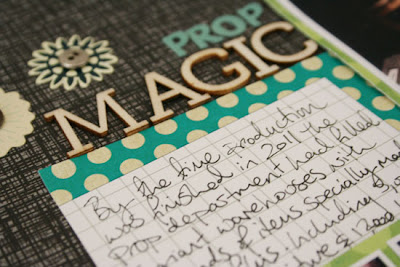 PROP
MAGIC
By the time production
was finished in 2011 the
prop department had filled
warehouses with
items specially made
including